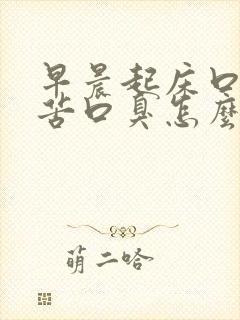 早晨起床口
苦口臭怎麼
萌二哈